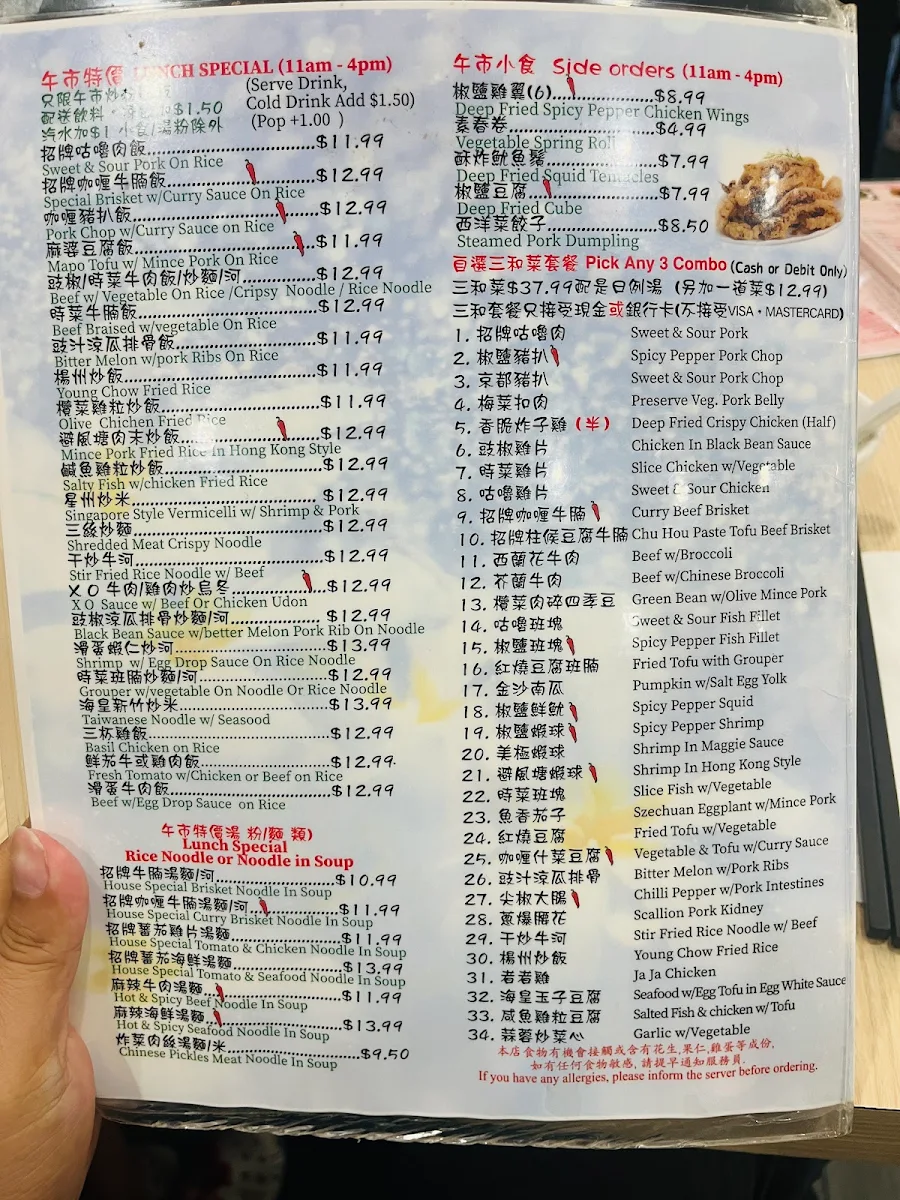 午市特價 LUNCH SPECIAL (11am - 4pm)
只限午市炒粉
(Serve Drink,
配送飲料 $1.50
Cold Drink Add $1.50)
汽水加$1 小食/湯粉除外
(Pop +1.00 )
招牌咕嚕肉飯 $11.99
Sweet & Sour Pork On Rice
招牌咖喱牛腩飯 $12.99
Special Brisket w/Curry Sauce On Rice
咖喱豬扒飯 $12.99
Pork Chop w/Curry Sauce on Rice
麻婆豆腐飯 $11.99
Mapo Tofu w/ Mince Pork On Rice
豉椒/時菜牛肉飯/炒麵/河 $12.99
Beef w/ Vegetable On Rice /Cripsy Noodle / Rice Noodle
時菜牛腩飯 $12.99
Beef Braised w/vegetable On Rice
豉汁涼瓜排骨飯 $11.99
Bitter Melon w/pork Ribs On Rice
楊州炒飯 $11.99
Young Chow Fried Rice
欖菜雞粒炒飯 $11.99
Olive Chichen Fried Rice
避風塘肉末炒飯 $12.99
Mince Pork Fried Rice In Hong Kong Style
鹹魚雞粒炒飯 $12.99
Salty Fish w/chicken Fried Rice
星州炒米 $12.99
Singapore Style Vermicelli w/ Shrimp & Pork
三絲炒麵 $12.99
Shredded Meat Crispy Noodle
干炒牛河 $12.99
Stir Fried Rice Noodle w/ Beef
XO牛肉/雞肉炒烏冬 $12.99
XO Sauce w/ Beef Or Chicken Udon
豉椒涼瓜排骨炒麵/河 $12.99
Black Bean Sauce w/better Melon Pork Rib On Noodle
滑蛋蝦仁炒河 $13.99
Shrimp w/ Egg Drop Sauce On Rice Noodle
時菜班腩炒麵/河 $12.99
Grouper w/vegetable On Noodle Or Rice Noodle
海皇新竹炒米 $13.99
Taiwanese Noodle w/ Seasood
三杯雞飯 $12.99
Basil Chicken on Rice
鮮茄牛或雞肉飯 $12.99
Fresh Tomato w/Chicken or Beef on Rice
滑蛋牛肉飯 $12.99
Beef w/Egg Drop Sauce on Rice
午市特價湯 粉/麵 類)
Lunch Special
Rice Noodle or Noodle in Soup
招牌牛腩湯麵/河 $10.99
House Special Brisket Noodle In Soup
招牌咖喱牛腩湯麵/河 $11.99
House Special Curry Brisket Noodle In Soup
招牌蕃茄雞片湯麵 $11.99
House Special Tomato & Chicken Noodle In Soup
招牌蕃茄海鮮湯麵 $13.99
House Special Tomato & Seafood Noodle In Soup
麻辣牛肉湯麵 $11.99
Hot & Spicy Beef Noodle In Soup
麻辣海鮮湯麵 $13.99
Hot & Spicy Seafood Noodle In Soup
炸菜肉絲湯麵/米 $9.50
Chinese Pickles Meat Noodle In Soup
午市小食 Side orders (11am - 4pm)
椒鹽雞翼(6) $8.99
Deep Fried Spicy Pepper Chicken Wings
素春卷 $4.99
Vegetable Spring Roll
酥炸魷魚鬚 $7.99
Deep Fried Squid Tentacles
椒鹽豆腐 $7.99
Deep Fried Cube
西洋菜餃子 $8.50
Steamed Pork Dumpling
自選三和菜套餐 Pick Any 3 Combo (Cash or Debit Only)
三和菜$37.99配是日例湯 (另加一道菜$12.99)
三和套餐只接受現金或銀行卡(不接受VISA・MASTERCARD)
1. 招牌咕嚕肉 Sweet & Sour Pork
2. 椒鹽豬扒 Spicy Pepper Pork Chop
3. 京都豬扒 Sweet & Sour Pork Chop
4. 梅菜扣肉 Preserve Veg. Pork Belly
5. 香脆炸子雞 (半) Deep Fried Crispy Chicken (Half)
6. 豉椒雞片 Chicken In Black Bean Sauce
7. 時菜雞片 Slice Chicken w/Vegetable
8. 咕嚕雞片 Sweet & Sour Chicken
9. 招牌咖喱牛腩 Curry Beef Brisket
10. 招牌柱侯豆腐牛腩 Chu Hou Paste Tofu Beef Brisket
11. 西蘭花牛肉 Beef w/Broccoli
12. 芥蘭牛肉 Beef w/Chinese Broccoli
13. 欖菜肉碎四季豆 Green Bean w/Olive Mince Pork
14. 咕嚕班塊 Sweet & Sour Fish Fillet
15. 椒鹽班塊 Spicy Pepper Fish Fillet
16. 紅燒豆腐班腩 Fried Tofu with Grouper
17. 金沙南瓜 Pumpkin w/Salt Egg Yolk
18. 椒鹽鮮魷 Spicy Pepper Squid
19. 椒鹽蝦球 Spicy Pepper Shrimp
20. 美極蝦球 Shrimp In Maggie Sauce
21. 避風塘蝦球 Shrimp In Hong Kong Style
22. 時菜班塊 Slice Fish w/Vegetable
23. 魚香茄子 Szechuan Eggplant w/Mince Pork
24. 紅燒豆腐 Fried Tofu w/Vegetable
25. 咖喱什菜豆腐 Vegetable & Tofu w/Curry Sauce
26. 豉汁涼瓜排骨 Bitter Melon w/Pork Ribs
27. 尖椒大腸 Chilli Pepper w/Pork Intestines
28. 蔥爆腰花 Scallion Pork Kidney
29. 干炒牛河 Stir Fried Rice Noodle w/ Beef
30. 楊州炒飯 Young Chow Fried Rice
31. 啫啫雞 Ja Ja Chicken
32. 海皇玉子豆腐 Seafood w/Egg Tofu in Egg White Sauce
33. 咸魚雞粒豆腐 Salted Fish & chicken w/Tofu
34. 蒜蓉炒菜心 Garlic w/Vegetable
本店食物有機會接觸或含有花生,果仁,雞蛋等成份,
如有任何食物敏感, 請提早通知服務員.
If you have any allergies, please inform the server before ordering.